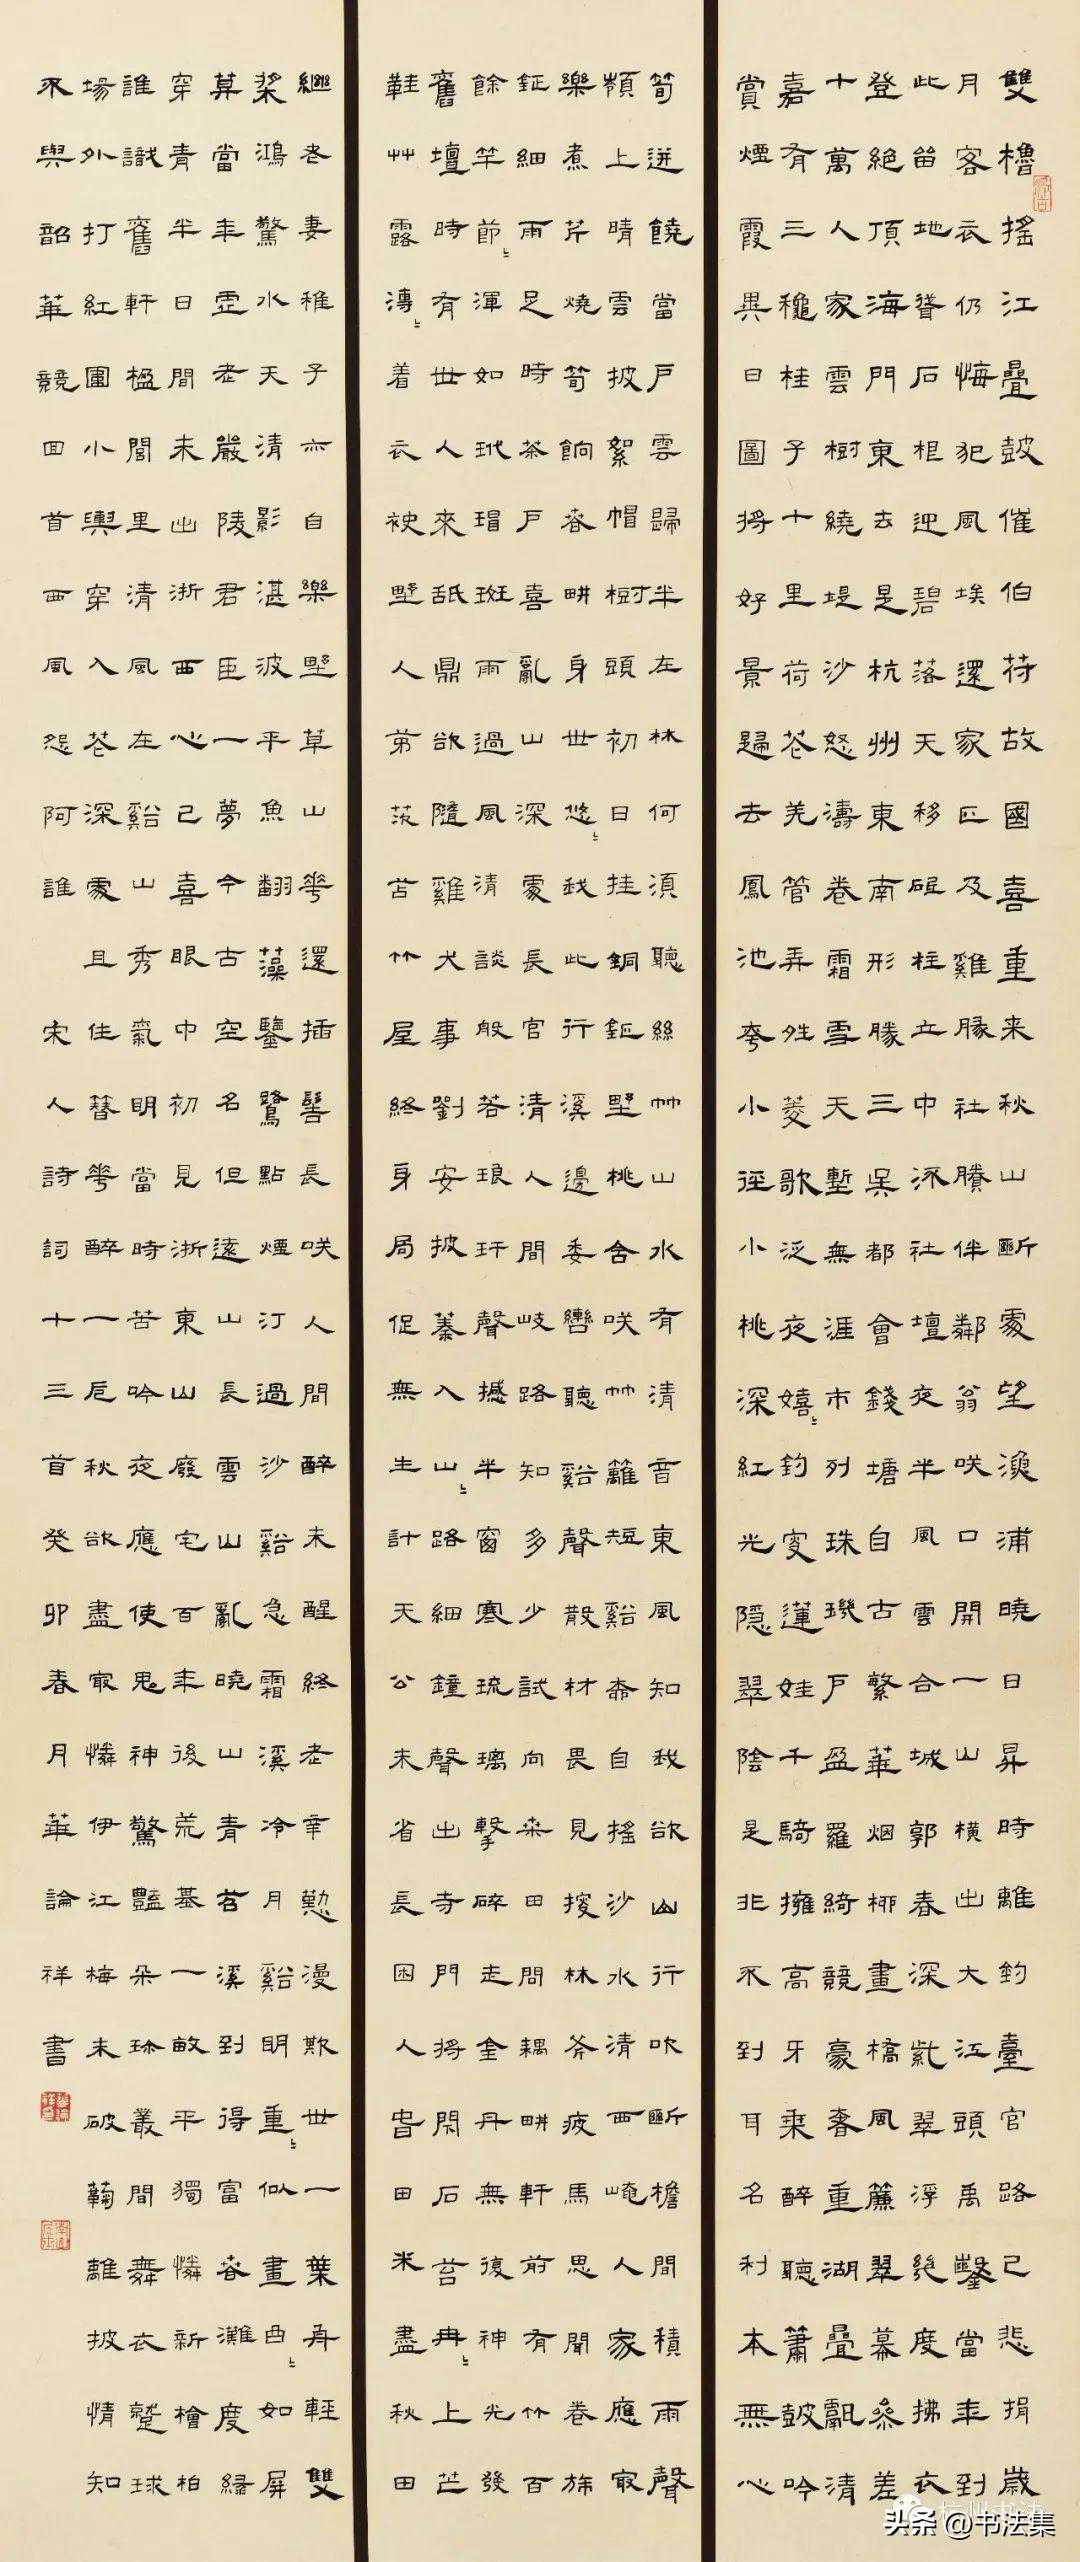 雙櫓搖江疊鼓催伯符故國喜重来秋山斷處望漁浦曉日昇時離釣臺官路已悲捐歲
月客衣仍悔犯風埃還家正及雞豚社賸伴鄰翁咲口開一山橫出大江頭禹鑿當年到
此畄地聳石根迎碧落天移砥柱立中流社壇夜半風雲合城郭春深紫翠浮幾度拂衣
登絕頂海門東去是杭州東南形勝三吳都會錢塘自古繁華烟柳畫橋風簾翠幕參差
十萬人家雲樹繞堤沙怒濤卷霜雪天塹無涯市列珠璣戶盈羅綺競豪奢重湖疊巘清
嘉有三穐桂子十里荷花羌管弄晴菱歌泛夜嬉〻釣叟蓮娃千騎擁高牙乘醉聽簫鼓吟
賞煙霞異日圖將好景歸去鳳池夸小徑小桃深紅光隱翠陰是非不到耳名利本無心
筍迸饒當戶雲歸半在林何須聽絲竹山水有清音東風知我欲山行吹斷檐間積雨聲
嶺上晴雲披絮帽樹頭初日挂銅鉦野桃含咲竹籬短谿柳自搖沙水清西崦人家應最
樂煮芹燒筍餉春畊身世悠〻我此行溪邊委轡聽谿聲散材畏見搜林斧疲馬思聞卷旆
鉦細雨足時茶戶喜亂山深處長官清人間岐路知多少試向桑田問耦畊軒前有竹百
餘竿節〻渾如玳瑁斑雨過風清談般若琅玕聲撼半窗寒琉璃擊碎走金丹無復神光發
舊壇時有世人來舐鼎欲隨雞犬事劉安披蓁入山〻路細鐘聲出寺門將閑石苔冉〻上芒
鞋艸露漙〻着衣袂野人第茨苫竹屋終身局促無生計天公未省長困人旹田米盡秋田
繼老妻稚子亦自樂野草山花還插髻長咲人間醉未醒終老辛勤漫欺世一葉舟輕雙
槳鴻驚水天清影湛波平魚翻藻鑒鷺點煙汀過沙谿急霜溪冷月谿明重〻似畫曲〻如屏
算當年虛老嚴陵君臣一夢今古空名但遠山長雲山亂曉山青苕溪到得富春灘度緣
穿青半日間未出浙西心已喜眼中初見浙東山廢宅百年後荒基一畝平獨憐新檜柏
誰識舊軒楹閭里清風在谿山秀氣明當時苦吟夜應使鬼神驚豔朵珎叢間舞衣蹴球
場外打紅圍小輿穿入花深處且住簪花醉一卮秋欲盡最憐伊江梅未破菊離披情知
不與韶華競回首西風怨阿誰 宋人詩詞十三首癸卯春月華論祥書
头条 @书法集